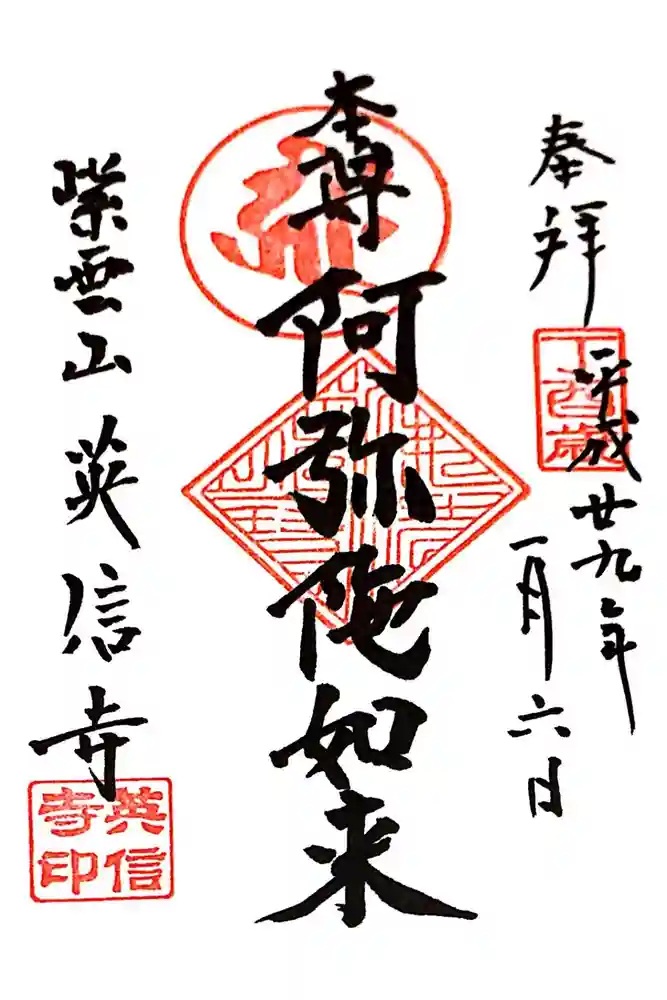 奉拝
平成廿九年
一月六日
本尊 阿弥陀如来
紫雲山 英信寺
英信
寺印